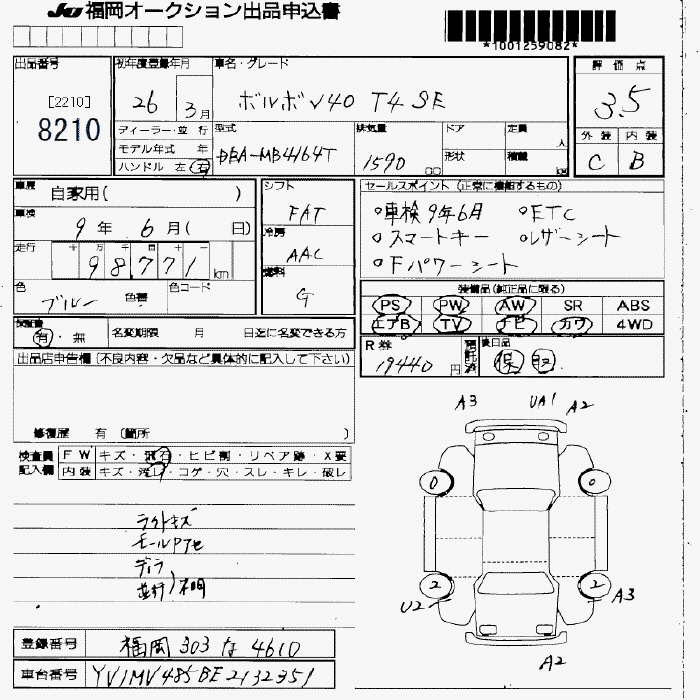 JU 福岡オークション出品申込書
*1001259082*
出品番号 初年度登録年月 車名・グレード 評価点
[2210] 26 3月 ボルボV40 T4 SE 3.5
8210
ディーラー・並行 型式 排気量 ドア 定員 人 外装 内装
モデル年式 年 DBA-MB4164T 1590 cc 形状 積載 kg C B
ハンドル 左 右
車歴 自家用( ) シフト FAT
車検 9年 6月( 日) 冷房 AAC
走行 十 万 千 百 十 一
98,771 km 燃料 G
色 ブルー 色替 色コード
セールスポイント (正常に機能するもの)
○車検9年6月 ○ETC
○スマートキー ○レザーシート
○Fパワーシート
装備品(純正品に限る)
PS PW AW SR ABS
エアB TV ナビ カワ 4WD
保証書 有・無 名変期限 月 日迄に名変できる方
R券 19440円 預託済 後日品 保 取
出品店申告欄 (不良内容・欠品など具体的に記入して下さい)
修復歴 有 (箇所 )
検査員 FW キズ・飛石・ヒビ割・リペア跡・X要
記入欄 内装 キズ・汚レ・コゲ・穴・スレ・キレ・破レ
ライトキズ
モールアセ
ディラ
並行)不明
A3 UA1 A2
0 0
2 2
U2 A3
A2
登録番号 福岡 303 な 4610
車台番号 YV1MV485BE2132351